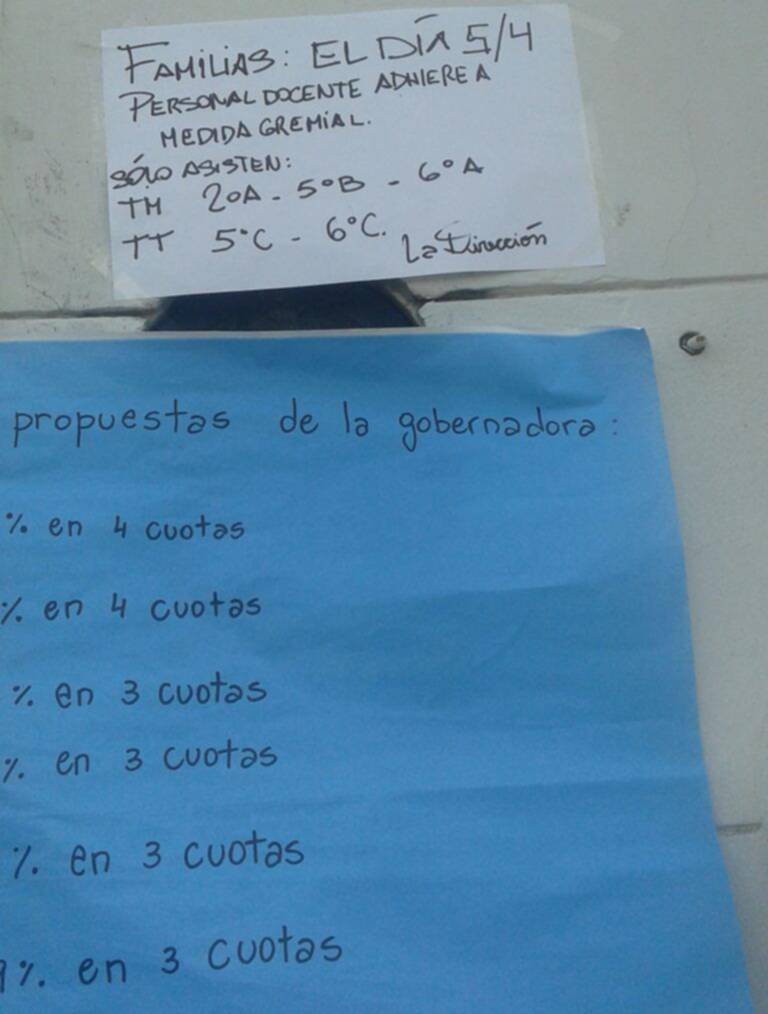 FAMILIAS: EL DÍA 5/4
PERSONAL DOCENTE ADHIERE A
MEDIDA GREMIAL.
SÓLO ASISTEN:
TM 2ºA - 5ºB - 6ºA
TT 5ºC - 6ºC.
La Dirección
propuestas de la gobernadora:
% en 4 cuotas
% en 4 cuotas
% en 3 cuotas
% en 3 cuotas
% en 3 cuotas
9%. en 3 cuotas